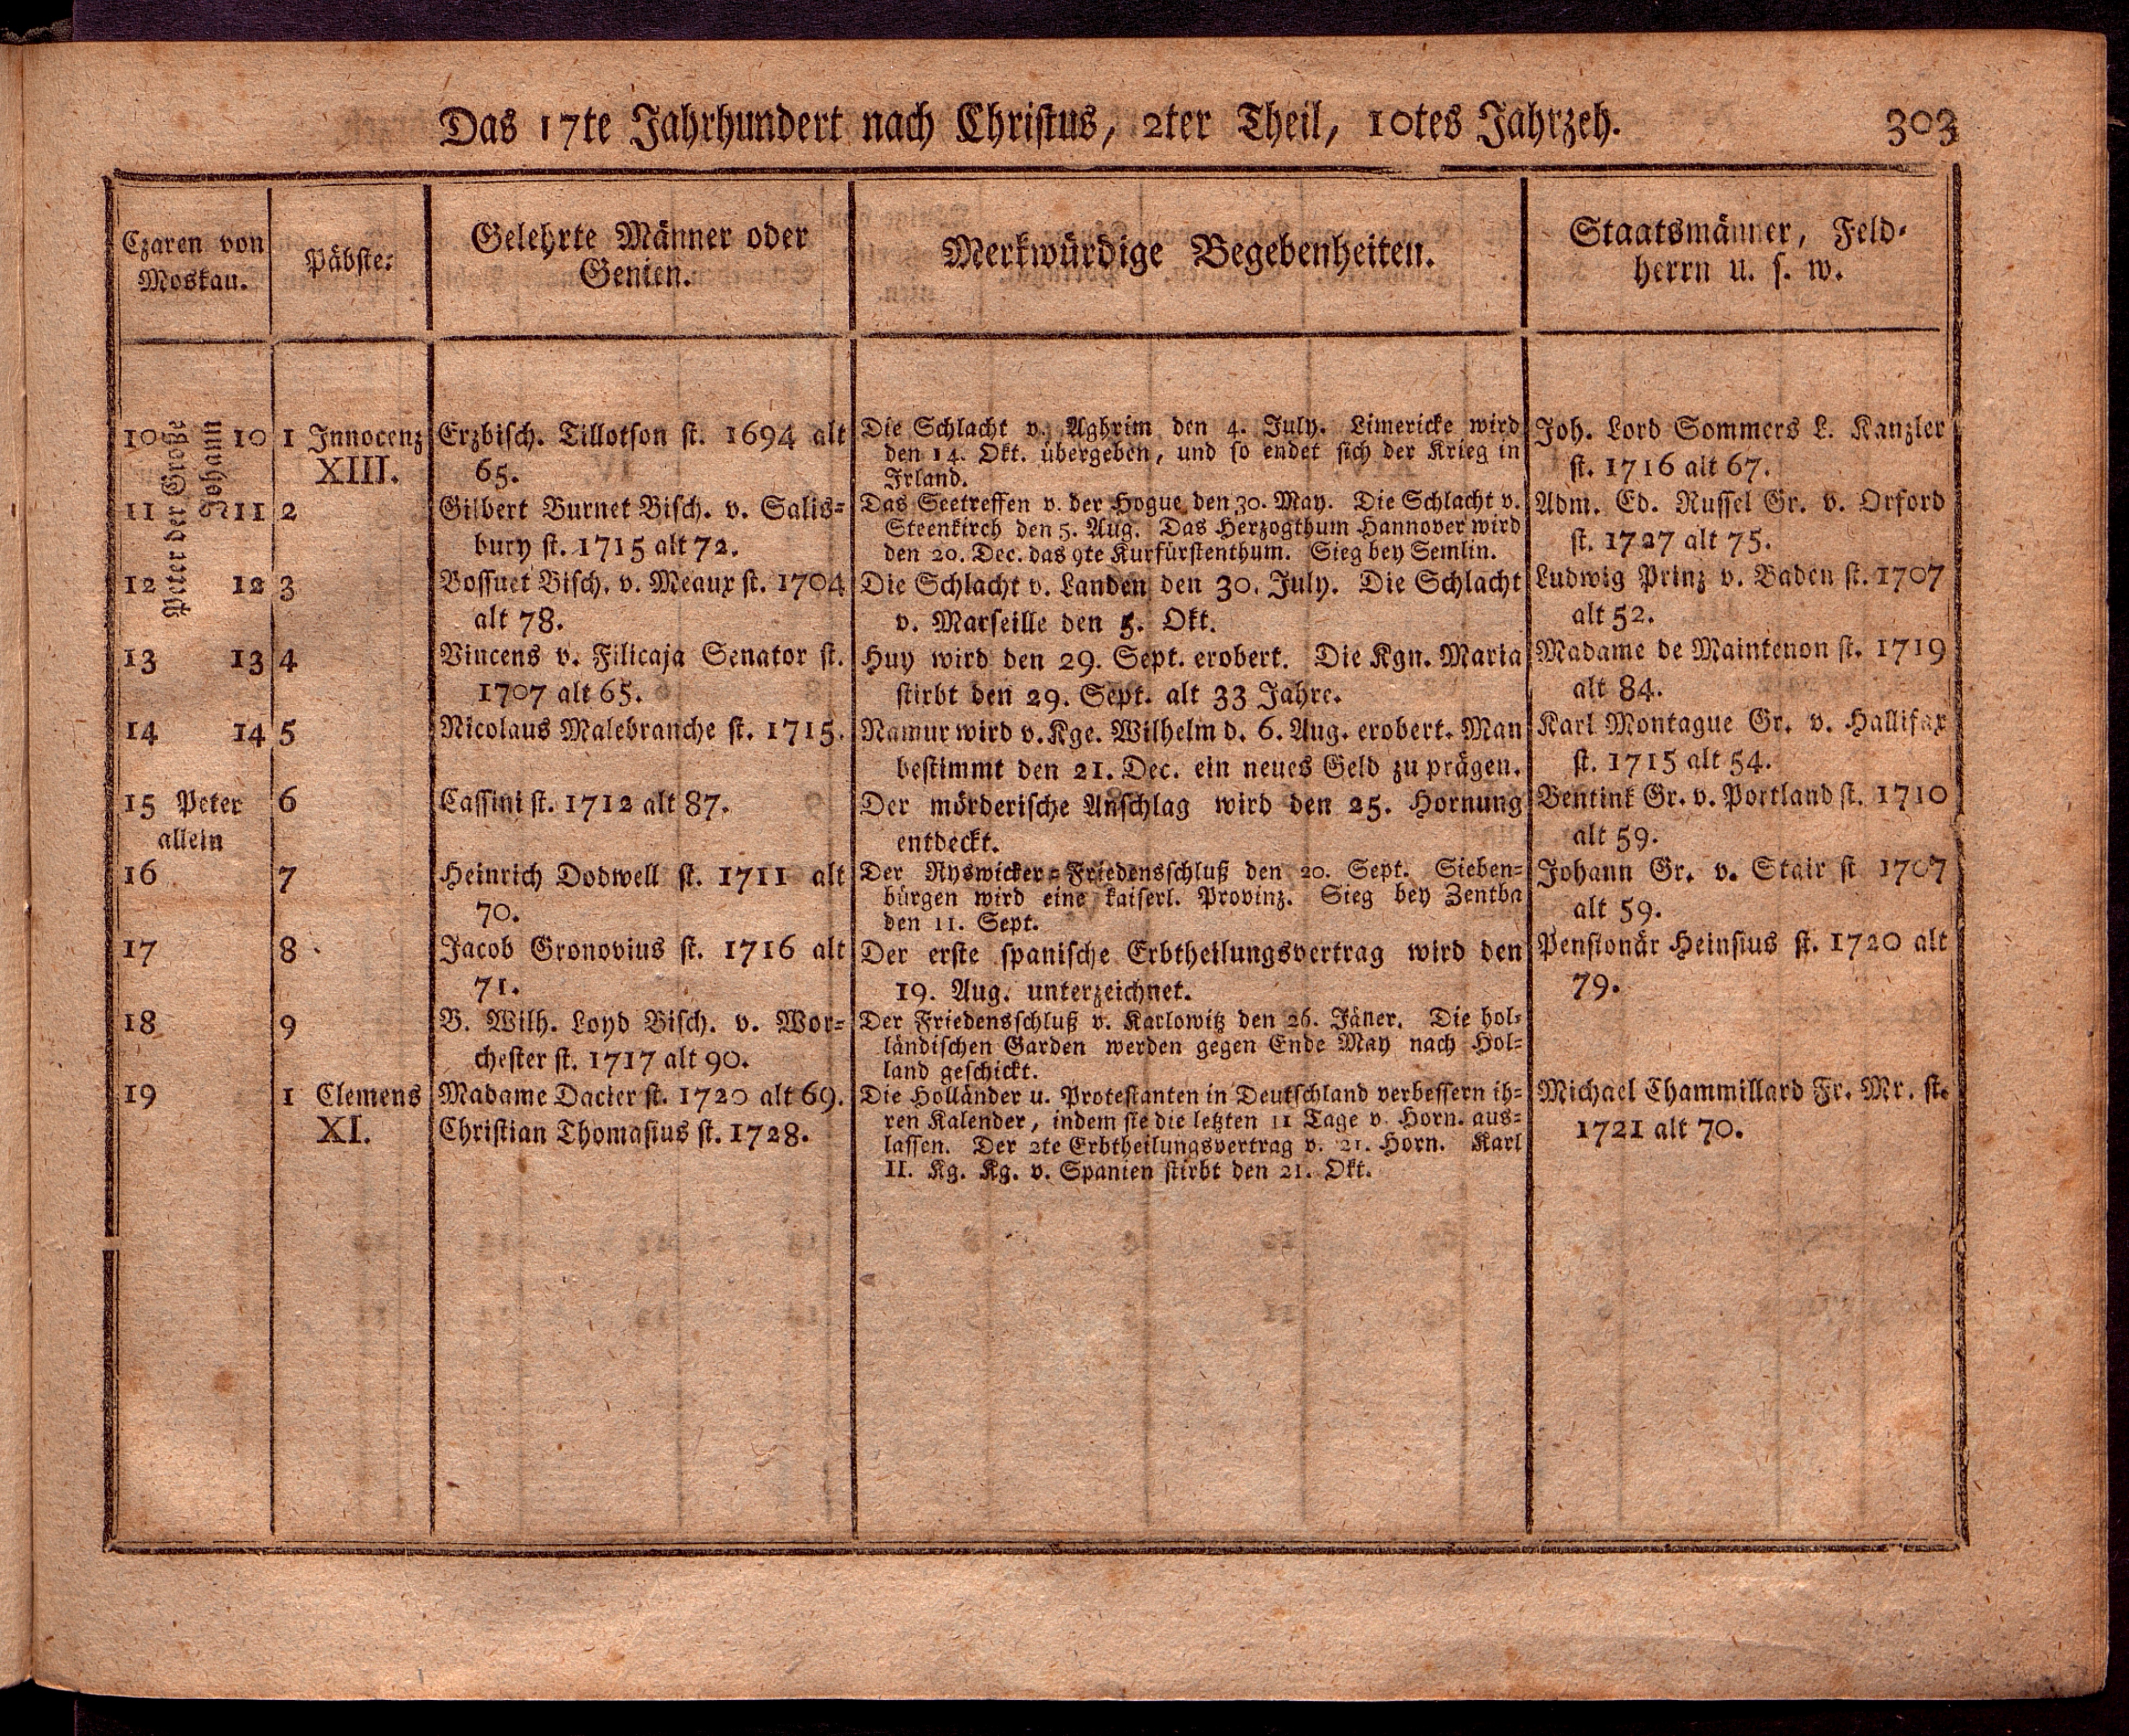 Das 17te Jahrhundert nach Christus, 2ter Theil, 10tes Jahrzeh. 303
Czaren von
Moskau.
Päbste.
Gelehrte Männer oder
Genien.
Merkwürdige Begebenheiten.
Staatsmänner, Feld-
herrn u. s. w.
Peter der Große
Johann
10 10
11 11
12 12
13 13
14 14
15 Peter
allein
16
17
18
19
1 Innocenz
XIII.
2
3
4
5
6
7
8
9
1 Clemens
XI.
Erzbisch. Tillotson st. 1694 alt
65.
Gilbert Burnet Bisch. v. Salis-
bury st. 1715 alt 72.
Bossuet Bisch. v. Meaux st. 1704
alt 78.
Vincens v. Filicaja Senator st.
1707 alt 65.
Nicolaus Malebranche st. 1715.
Cassini st. 1712 alt 87.
Heinrich Dodwell st. 1711 alt
70.
Jacob Gronovius st. 1716 alt
71.
B. Wilh. Loyd Bisch. v. Wor-
chester st. 1717 alt 90.
Madame Dacier st. 1720 alt 69.
Christian Thomasius st. 1728.
Die Schlacht v. Aghrim den 4. July. Limericke wird
den 14. Okt. übergeben, und so endet sich der Krieg in
Irland.
Das Seetreffen v. der Hogue den 30. May. Die Schlacht v.
Steenkirch den 5. Aug. Das Herzogthum Hannover wird
den 20. Dec. das 9te Kurfürstenthum. Sieg bey Semlin.
Die Schlacht v. Landen den 30. July. Die Schlacht
v. Marseille den 5. Okt.
Huy wird den 29. Sept. erobert. Die Kgn. Maria
stirbt den 29. Sept. alt 33 Jahre.
Namur wird v. Kge. Wilhelm d. 6. Aug. erobert. Man
bestimmt den 21. Dec. ein neues Geld zu prägen.
Der mörderische Anschlag wird den 25. Hornung
entdeckt.
Der Ryswicker-Friedensschluß den 20. Sept. Sieben-
bürgen wird eine kaiserl. Provinz. Sieg bey Zentha
den 11. Sept.
Der erste spanische Erbtheilungsvertrag wird den
19. Aug. unterzeichnet.
Der Friedensschluß v. Karlowitz den 26. Jäner. Die hol-
ländischen Garden werden gegen Ende May nach Hol-
land geschickt.
Die Holländer u. Protestanten in Deutschland verbessern ih-
ren Kalender, indem sie die letzten 11 Tage v. Horn. aus-
lassen. Der 2te Erbtheilungsvertrag v. 21. Horn. Karl
II. Kg. Kg. v. Spanien stirbt den 21. Okt.
Joh. Lord Sommers L. Kanzler
st. 1716 alt 67.
Adm. Ed. Russel Gr. v. Orford
st. 1727 alt 75.
Ludwig Prinz v. Baden st. 1707
alt 52.
Madame de Maintenon st. 1719
alt 84.
Karl Montague Gr. v. Hallifax
st. 1715 alt 54.
Bentink Gr. v. Portland st. 1710
alt 59.
Johann Gr. v. Stair st 1707
alt 59.
Pensionär Heinsius st. 1720 alt
79.
Michael Chammillard Fr. Mr. st.
1721 alt 70.